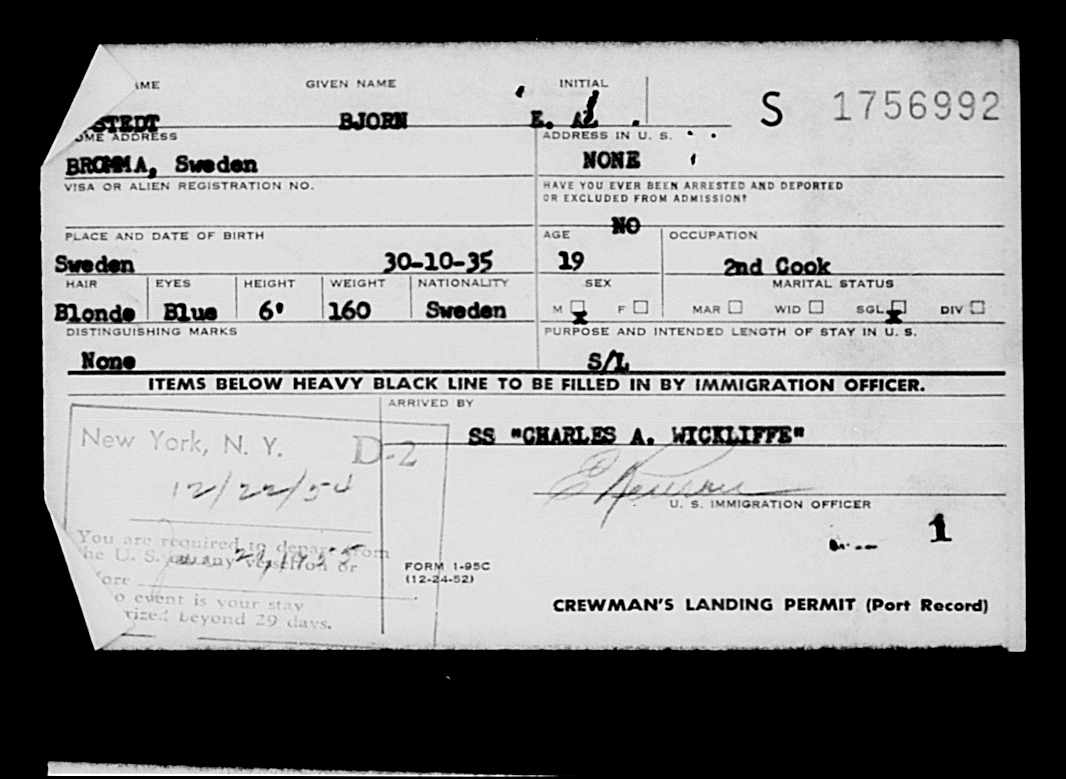 AME GIVEN NAME INITIAL
STEDT BJORN E. A. S 1756992
OME ADDRESS ADDRESS IN U. S.
BROMMA, Sweden NONE
VISA OR ALIEN REGISTRATION NO. HAVE YOU EVER BEEN ARRESTED AND DEPORTED
OR EXCLUDED FROM ADMISSION?
NO
PLACE AND DATE OF BIRTH AGE OCCUPATION
Sweden 30-10-35 19 2nd Cook
HAIR EYES HEIGHT WEIGHT NATIONALITY SEX MARITAL STATUS
Blonde Blue 6' 160 Sweden M X F MAR WID SGL X DIV
DISTINGUISHING MARKS PURPOSE AND INTENDED LENGTH OF STAY IN U. S.
None S/L
ITEMS BELOW HEAVY BLACK LINE TO BE FILLED IN BY IMMIGRATION OFFICER.
ARRIVED BY
New York, N. Y. D-2 SS "CHARLES A. WICKLIFFE"
12/22/54
U. S. IMMIGRATION OFFICER
1
You are required to depart from
the U. S. on any vessel on or
fore
o event is your stay
rized beyond 29 days.
FORM I-95C
(12-24-52)
CREWMAN'S LANDING PERMIT (Port Record)